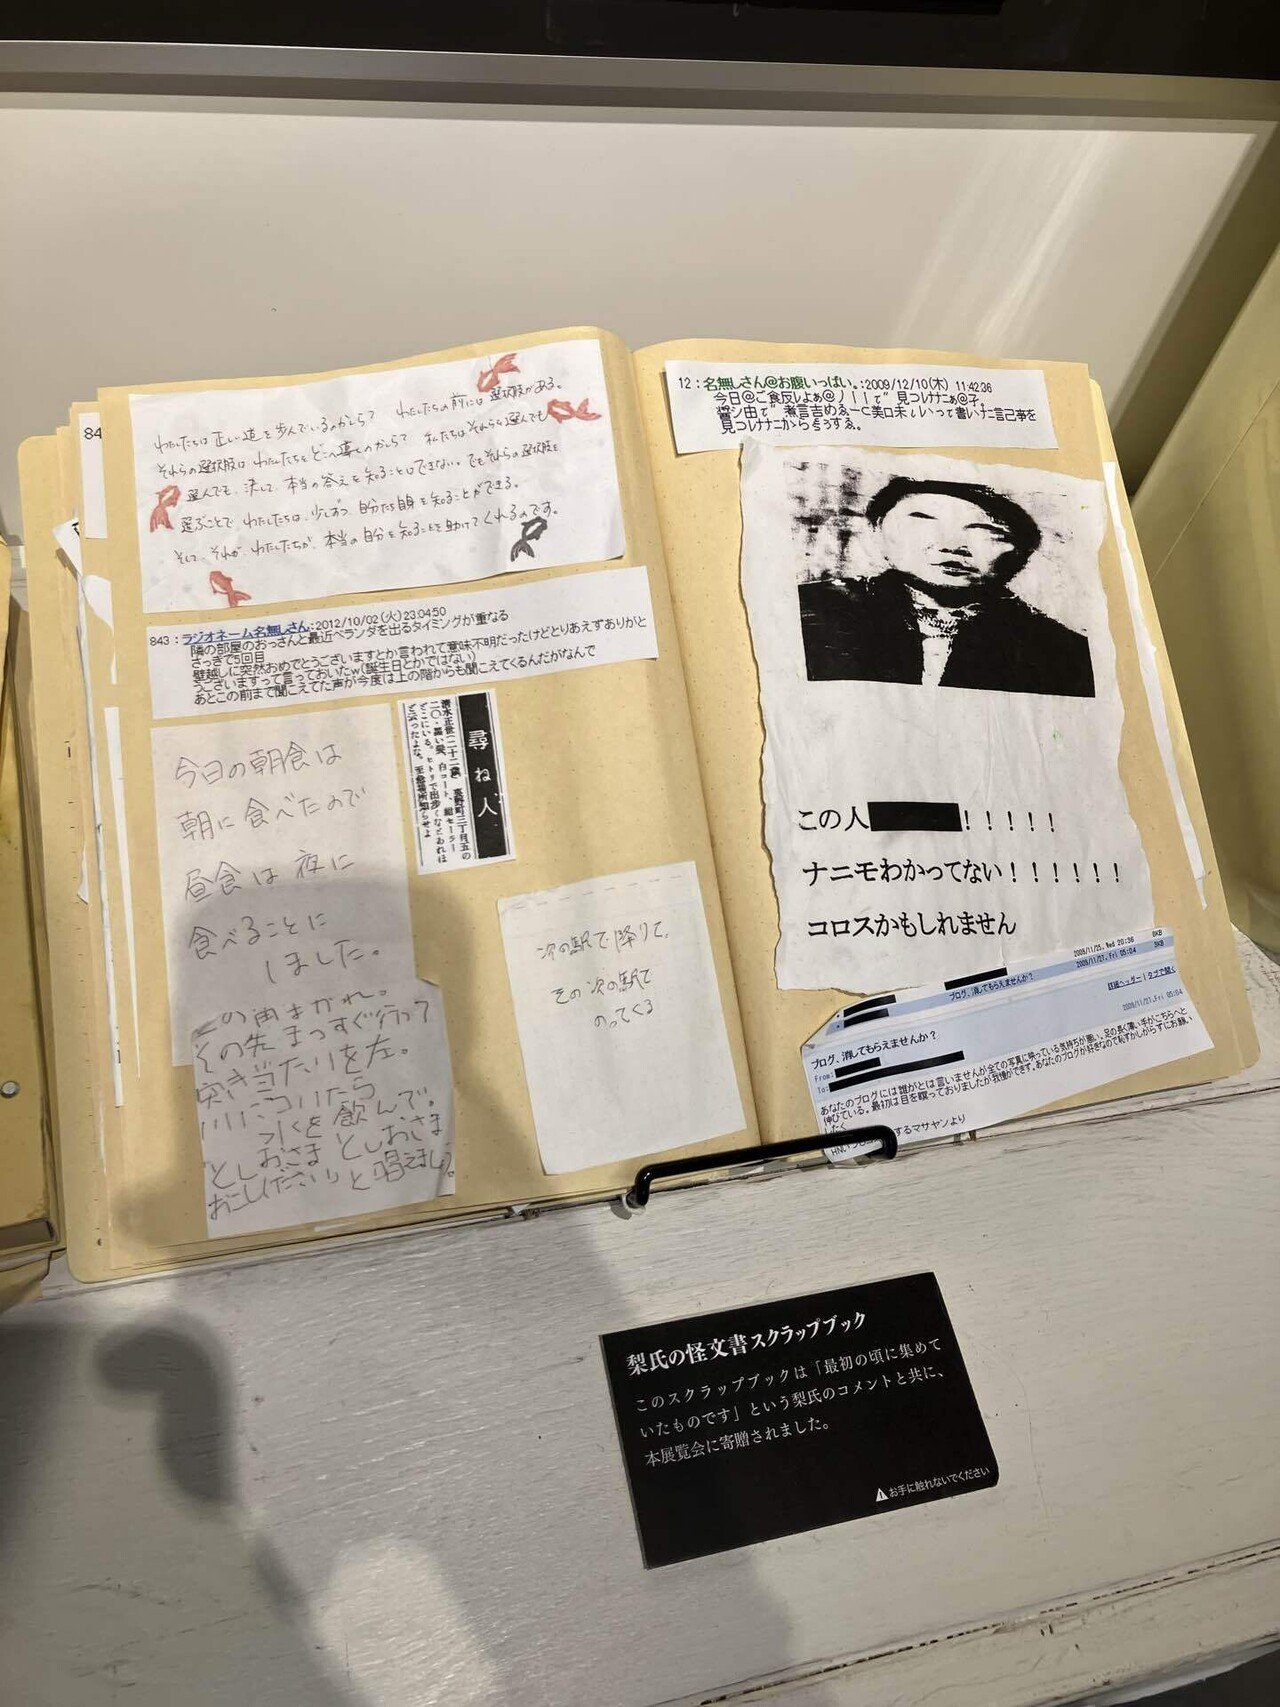 わたしたちは正しい道を歩んでいるのかしら? わたしたちの前には選択肢がある。
それらの選択肢はわたしたちをどこへ導くのかしら? 私たちはそれらを選んでも
選んでも、決して、本当の答えを知ることはできない。でもそれらの選択肢を
選ぶことで、わたしたちは、少しずつ自分たち自身を知ることができる。
そして、それが、わたしたちが、本当の自分を知ることを助けてくれるのです。
84
843:ラジオネーム名無しさん:2012/10/02(火)23:04:50
隣の部屋のおっさんと最近ベランダを出るタイミングが重なる
さっきで5回目
壁越しに突然おめでとうございますとか言われて意味不明だったけどとりあえずありがと
うございますって言っておいたw(誕生日とかではない)
あとこの前まで聞こえてた声が今度は上の階からも聞こえてくるんだがなんで
尋ね人
今日の朝食は
朝に食べたので
昼食は夜に
食べることに
しました。
の角まがれ。
その先まっすぐ行って
突き当たりを左。
としおさま としおさま
おこしくださいと唱えましょう。
次の駅で降りて、
その次の駅で
のってくる
12:名無しさん@お腹いっぱい。:2009/12/10(木) 11:42:36
この人 !!!!!
ナニモわかってない!!!!!!
コロスかもしれません
2008/11/25, Wed 20:36 8KB
ブログ、消してもらえませんか? 2008/11/27, Fri 05:04 3KB
詳細ヘッダー|タブで開く
2008/11/27, Fri 05:04
ブログ、消してもらえませんか?
From:
To:
あなたのブログには誰がとは言いませんが全ての写真に映っている気持ちが悪い、足の長く薄い手がこちらへと
伸びている。最初は目を瞑っておりましたが我慢ができず。あなたのブログが好きなので恥ずかしがらずにお願い
したく
するマサヤンより
梨氏の怪文書スクラップブック
このスクラップブックは「最初の頃に集めて
いたものです」という梨氏のコメントと共に、
本展覧会に寄贈されました。
⚠お手に触れないでください